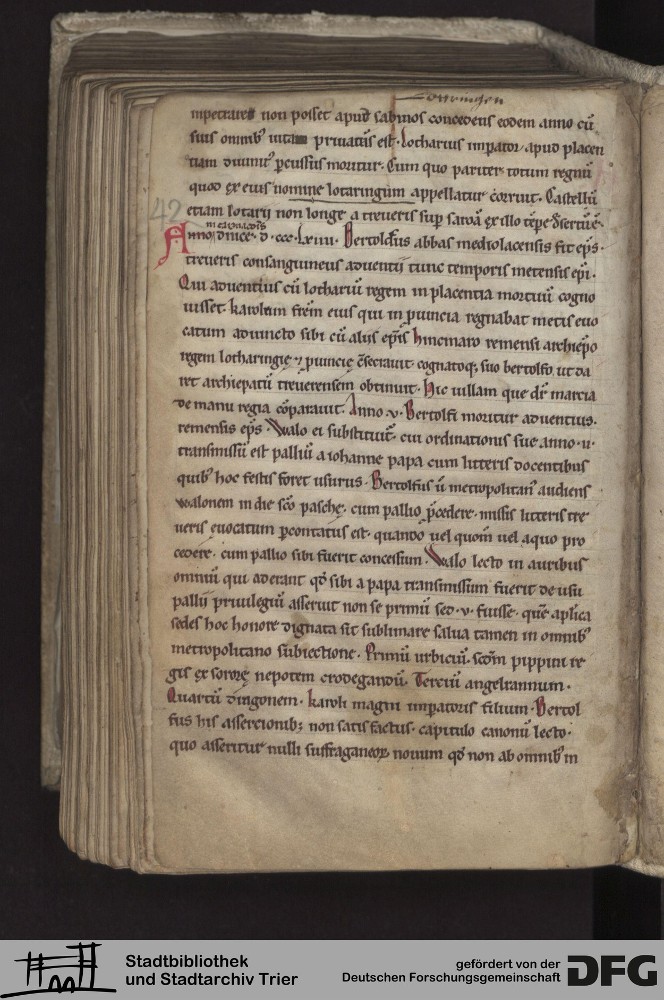 Lotteringen
inpetrares non posset apud sabinos concedens eodem anno cū
suis omnib; uita priuatus est. Lotharius imp̄ator apud placen
tiam diuinit᷒ p̄cussus moritur. Cum quo pariter totum regnū
quod ex eius nomine lotaringum appellatur corruit. Castellū
etiam lotarij non longe a treueris sup̄ saroā ex illo tēpe dēsertū ē.
42
incarnacōis
Anno dnīce. d. ccc. lxiiii. Bertolfus abbas mediolacensis fit ep̄s.
treueris consanguineus aduentij tunc temporis metensis ep̄i.
Qui aduentius cū lothariū regem in placentia mortuū cogno
uisset karolum frēm eius qui in p̄uincia regnabat metis euo
catum adiuncto sibi cū alijs ep̄is hincmaro remensi archiep̄o
regem lotharingię ⁊ p̄uincię cōsecrauit. cognatoq; suo bertolfo ut da
ret archiepatū treuerensem obtinuit. Hic uillam que dr̄ marcia
de manu regia cōparauit. Anno .v. Bertolfi moritur aduentius.
remensis ep̄s. Walo ei substituit᷒. cui ordinationis sue anno .u.
transmissū est palliū a iohanne papa cum litteris docentibus
quib᷒ hoc festis foret usurus. Bertolfus ū metropolitan᷒ audiens
walonem in die sc̄o paschę. cum pallio p̄cedere. missis litteris tre
ueris euocatum p̄contatus est. quando uel quom̄ uel a quo pro
cedere. cum pallio sibi fuerit concessum. Walo lecto in auribus
omniū qui aderant qd̄ sibi a papa transmissum fuerit de usu
pallij priuilegiū asseruit non se primū sed .v. fuisse. quē aplīca
sedes hoc honore dignata sit sublimare salua tamen in omnib᷒
metropolitano subiectione. Primū urbiciū. scd̄m pippini re
gis ex sorore nepotem crodegandū. Terciū angelrannum.
Quartū drugonem. karoli magni imp̄atoris filium. Bertol
fus his assercionib; non satisfactus. capitulo canonū lecto.
quo asseritur nulli suffraganeor̄ nouum qd̄ non ab omnib᷒ in
Stadtbibliothek
und Stadtarchiv Trier
gefördert von der
Deutschen Forschungsgemeinschaft
DFG